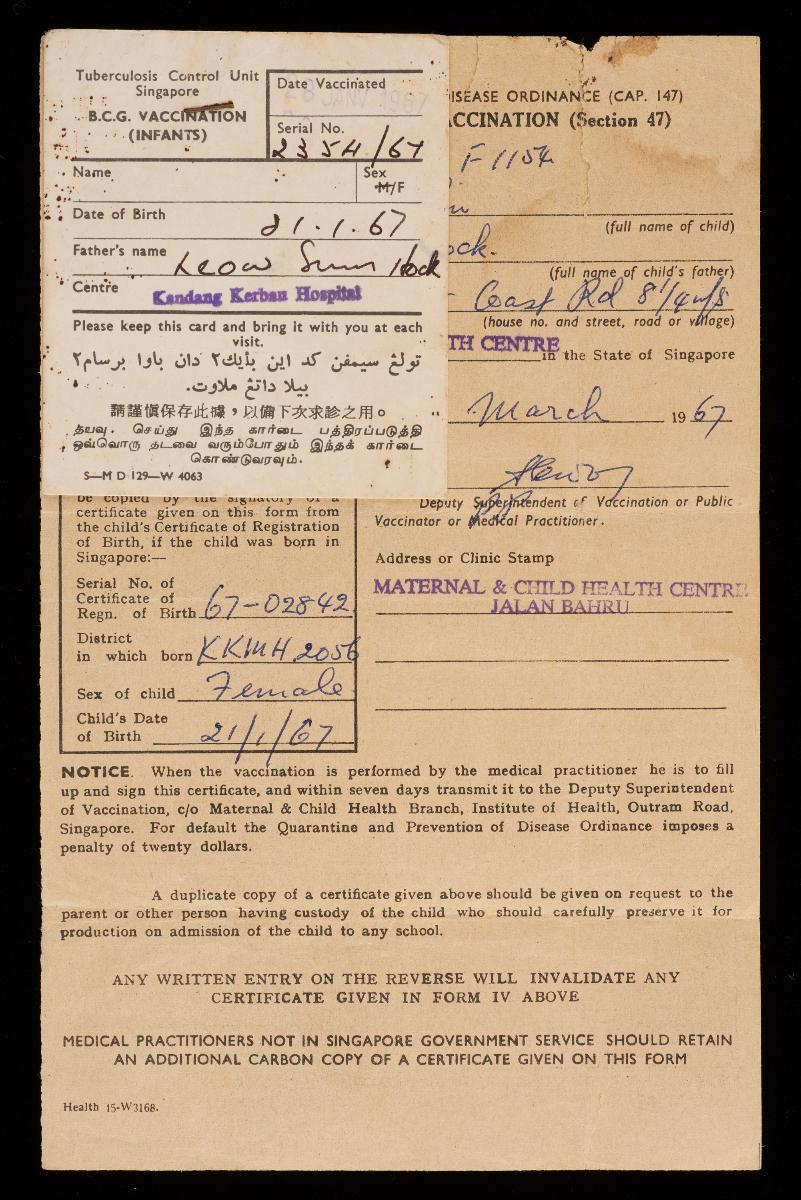 Tuberculosis Control Unit
Singapore
B.C.G. VACCINATION
(INFANTS)
Date Vaccinated
Serial No.
2354/67
Name
Sex
M/F
Date of Birth 21.1.67
Father's name Leow Hock
Centre Kandang Kerbau Hospital
Please keep this card and bring it with you at each
visit.
تولڠ سيمڤن کد اين بأيك٢ دان باوا برسام٢
بيلا داتڠ ملاوت.
請謹慎保存此據，以備下次求診之用。
தயவு செய்து இந்த கார்டை பத்திரப்படுத்தி
ஒவ்வொரு தடவை வரும்போதும் இந்தக் கார்டை
கொண்டுவரவும்.
S—M D 129—W 4063
ISEASE ORDINANCE (CAP. 147)
CCINATION (Section 47)
F 1154
(full name of child)
ock.
(full name of child's father)
Coast Rd 8 1/4 m/s
(house no. and street, road or village)
TH CENTRE in the State of Singapore
March 1967
Deputy Superintendent of Vaccination or Public
Vaccinator or Medical Practitioner.
Address or Clinic Stamp
MATERNAL & CHILD HEALTH CENTRE
JALAN BAHRU
be copied by the signatory of a
certificate given on this form from
the child's Certificate of Registration
of Birth, if the child was born in
Singapore:—
Serial No. of
Certificate of
Regn. of Birth 67-02842
District
in which born KKMH 2056
Sex of child Female
Child's Date
of Birth 21/1/67
NOTICE. When the vaccination is performed by the medical practitioner he is to fill
up and sign this certificate, and within seven days transmit it to the Deputy Superintendent
of Vaccination, c/o Maternal & Child Health Branch, Institute of Health, Outram Road,
Singapore. For default the Quarantine and Prevention of Disease Ordinance imposes a
penalty of twenty dollars.
A duplicate copy of a certificate given above should be given on request to the
parent or other person having custody of the child who should carefully preserve it for
production on admission of the child to any school.
ANY WRITTEN ENTRY ON THE REVERSE WILL INVALIDATE ANY
CERTIFICATE GIVEN IN FORM IV ABOVE
MEDICAL PRACTITIONERS NOT IN SINGAPORE GOVERNMENT SERVICE SHOULD RETAIN
AN ADDITIONAL CARBON COPY OF A CERTIFICATE GIVEN ON THIS FORM
Health 15-W3168.